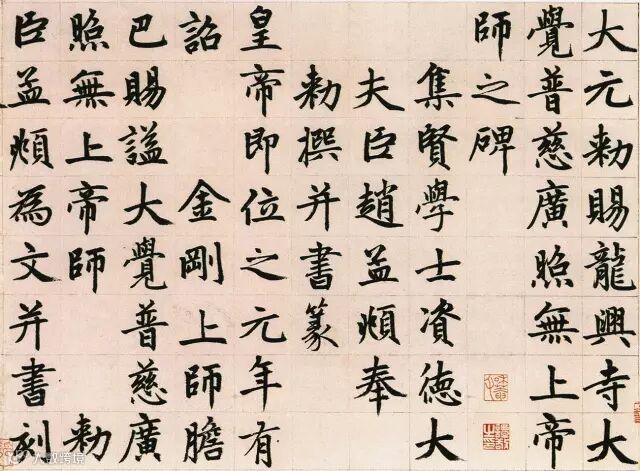 大元勅賜龍興寺大
覺普慈廣照無上帝
師之碑
集賢學士資德大
夫臣趙孟頫奉
勅撰并書篆
皇帝即位之元年有
詔金剛上師膽
巴賜謚大覺普慈廣
照無上帝師勅
臣孟頫為文并書刻
大数跨境